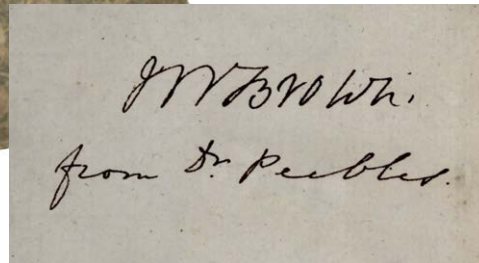 J W Brown.
from Dr. Peebles.